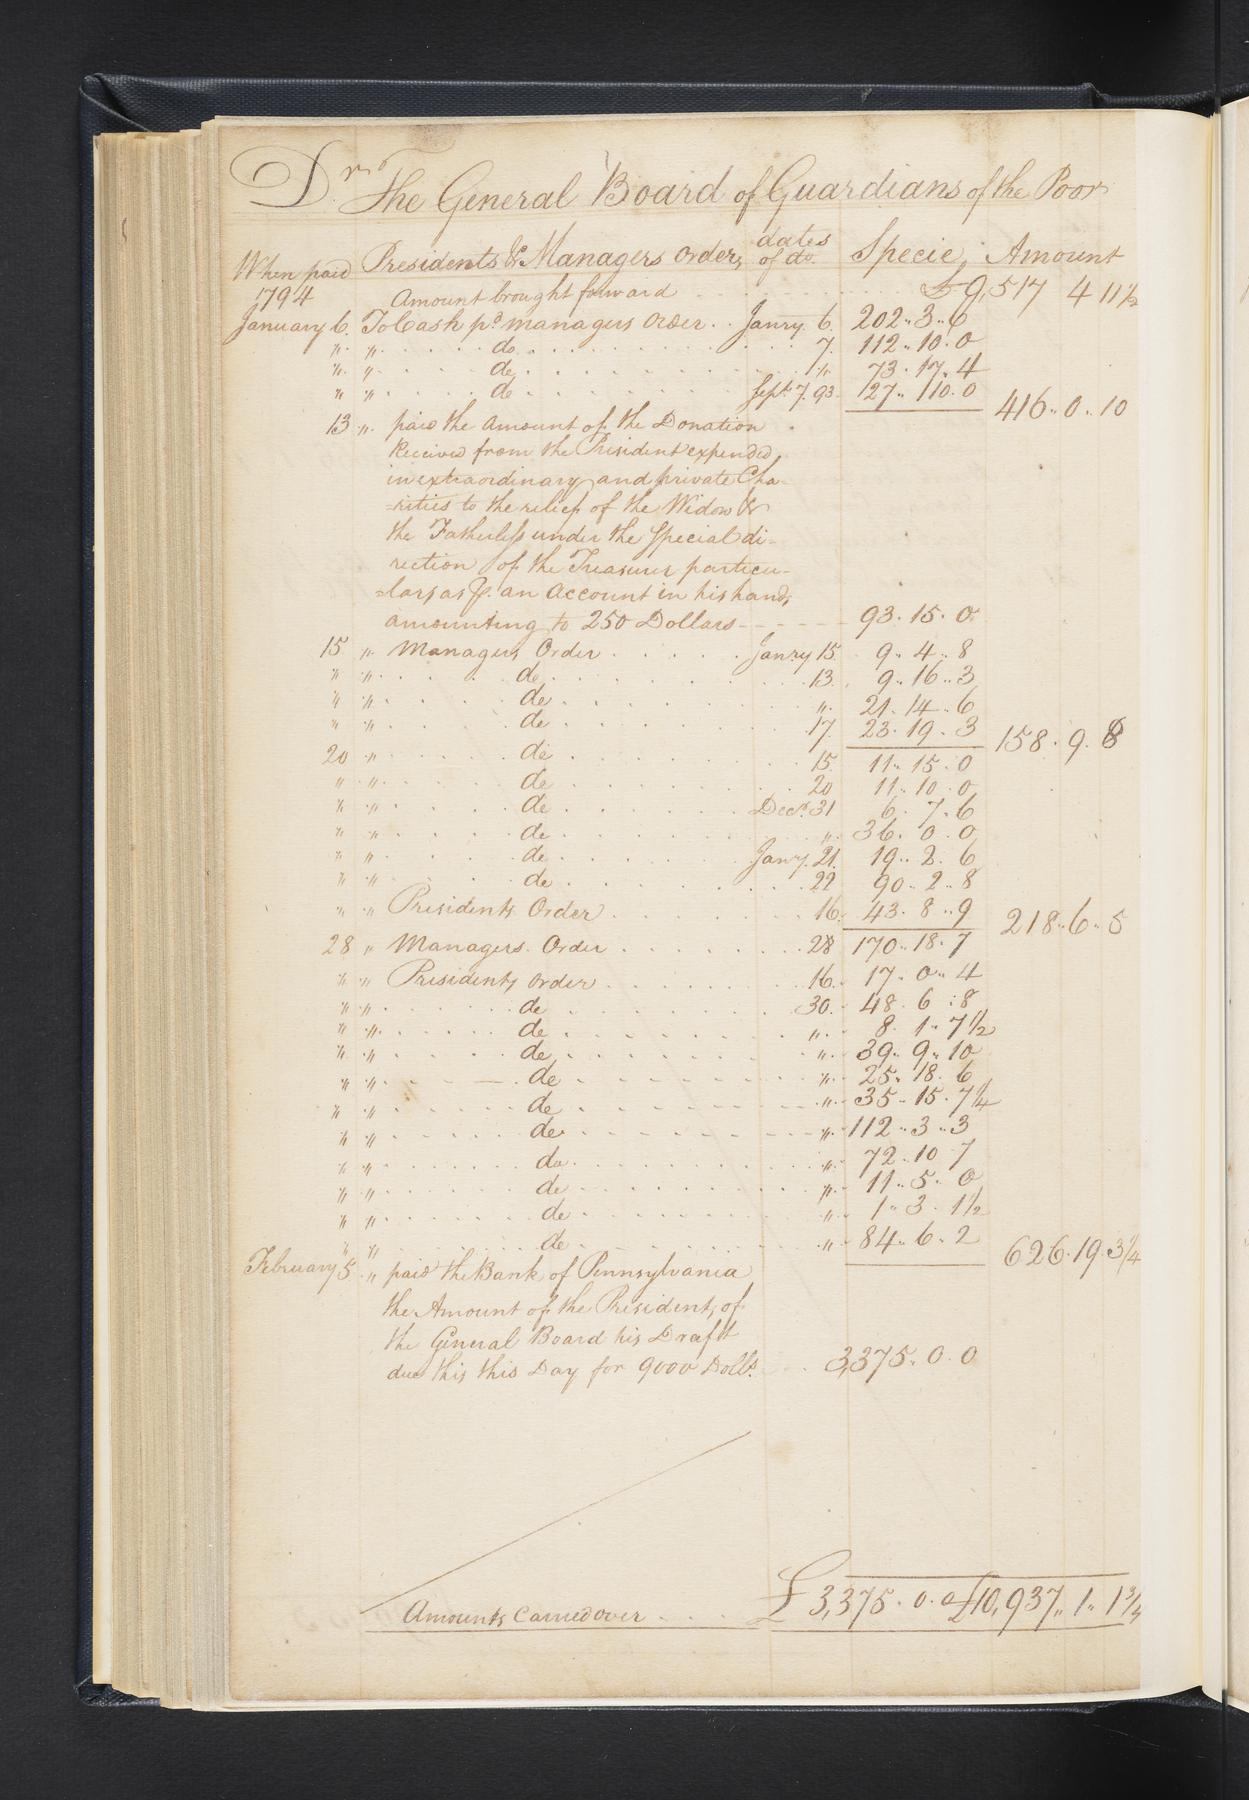 Dr. The General Board of Guardians of the Poor
When paid Presidents & Managers orders dates of do. Specie, Amount
1794 Amount brought forward £9,517 4 11½
January 6. To Cash pd. managers Order Janry. 6. 202..3..6
" " do 7. 112..10.0
" " do " 73.17.4
" " do Sept. 7. 93 127..110.0 416..0..10
13 " paid the amount of the Donation
Received from the President expended
in extraordinary and private Cha-
=rities to the relief of the Widow &
the Fatherless under the Special di-
rection of the Treasurer particu-
=lars as Pr. an account in his hands
amounting to 250 Dollars 93.15.0
15 " Managers Order Janry 15 9..4..8
" " do 13. 9..16..3
" " do " 21.14.6
" " do 17. 23.19.3 158.9.8
20 " do 15 11..15.0
" " do 20 11..10.0
" " do Decr. 31 6.7.6
" " do " 36.0.0
" " do Janry. 21. 19..2.6
" " do 22 90..2..8
" " Presidents Order 16. 43.8..9 218..6..5
28 " Managers Order 28 170..18.7
" " Presidents order 16. 17.0..4
" " do 30. 48.6:8
" " do " 8.1..7½
" " do " 39..9..10
" " do " 25.18.6
" " do " 35..15.7¼
" " do " 112..3..3
" " do " 72..10 7
" " do " 11..5.0
" " do " 1..3.1½
" " do " 84..6.2 626.19.3¼
February 5 " paid the Bank of Pennsylvania
the Amount of the Presidents of
the General Board his Draft
due this this Day for 9000 Dolls. 3,375.0.0
Amounts Carried over £3,375.0.0 £10,937..1..1¾